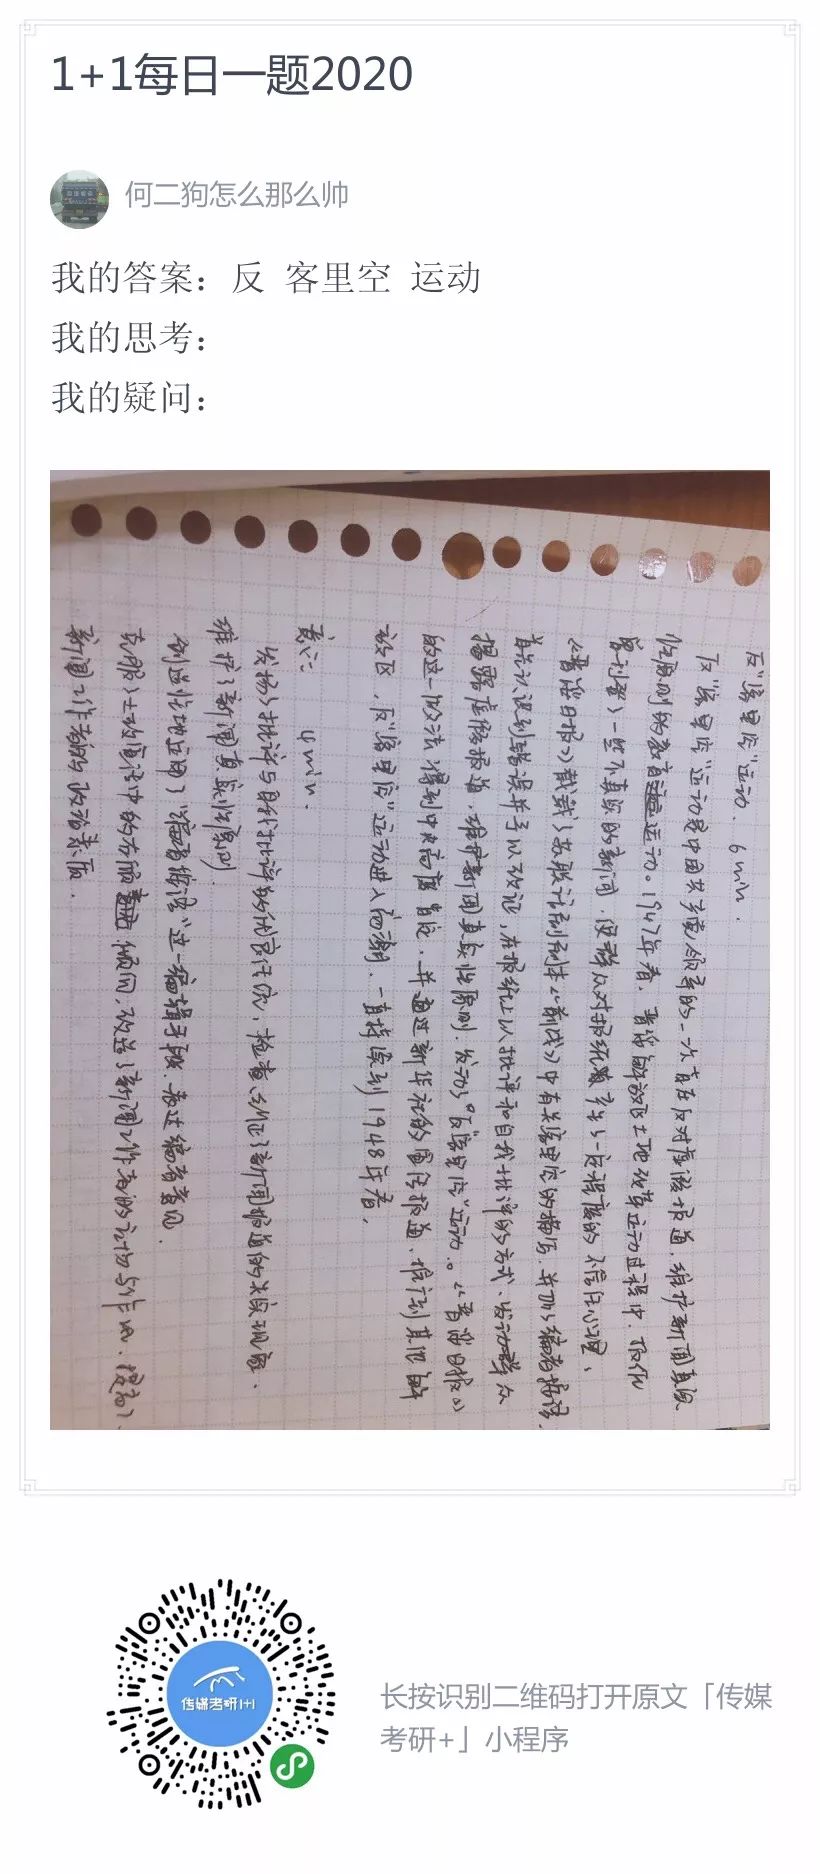 1+1每日一题2020
何二狗怎么那么帅
我的答案：反 客里空 运动
我的思考：
我的疑问：
反"客里空"运动. 6min.
反"客里空"运动是中国共产党领导的一次旨在反对虚假报道，维护新闻真实
性原则的教育运动。1947年春，晋绥解放区土地改革运动过程中，
一些不真实的新闻，使群众对报纸产生了一定程度的不信任心理，
《晋绥日报》载《前线》中有关客里空的描写，并加了编者按语
认识到错误并予以改正，在报纸上以批评和自我批评的方式，发动群众
揭露虚假报道，维护新闻真实性原则，发动了"反客里空"运动。《晋绥日报》
的这一做法得到中央高度肯定，并通过新华社的宣传报道，推广到其他解
放区，反"客里空"运动进入高潮，一直持续到1948年春，
意义：4min.
发扬了批评与自我批评的优良作风，检查纠正了新闻报道的失实现象，
维护了新闻真实性原则
创造性地运用了"编者按语"这一编辑手段，表达编者意见.
克服了土改宣传中的右倾倾向，改造了新闻工作者的立场与作风，提高了
新闻工作者的政治素质.
传媒考研1+1
长按识别二维码打开原文「传媒
考研+」小程序